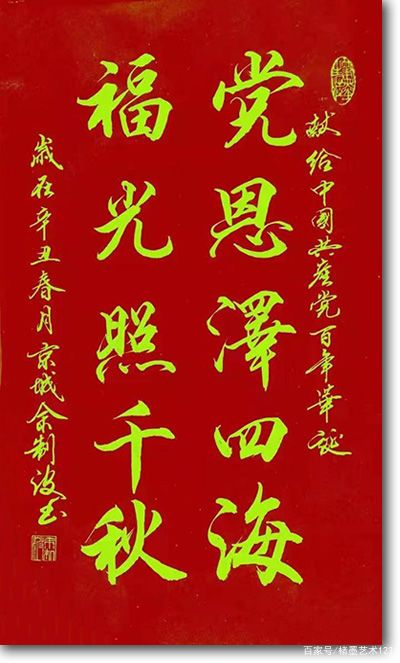 献给中國共產党百年华诞
党恩澤四海
福光照千秋
歳在辛丑春月京城余制波书
百家号/楮墨艺术123